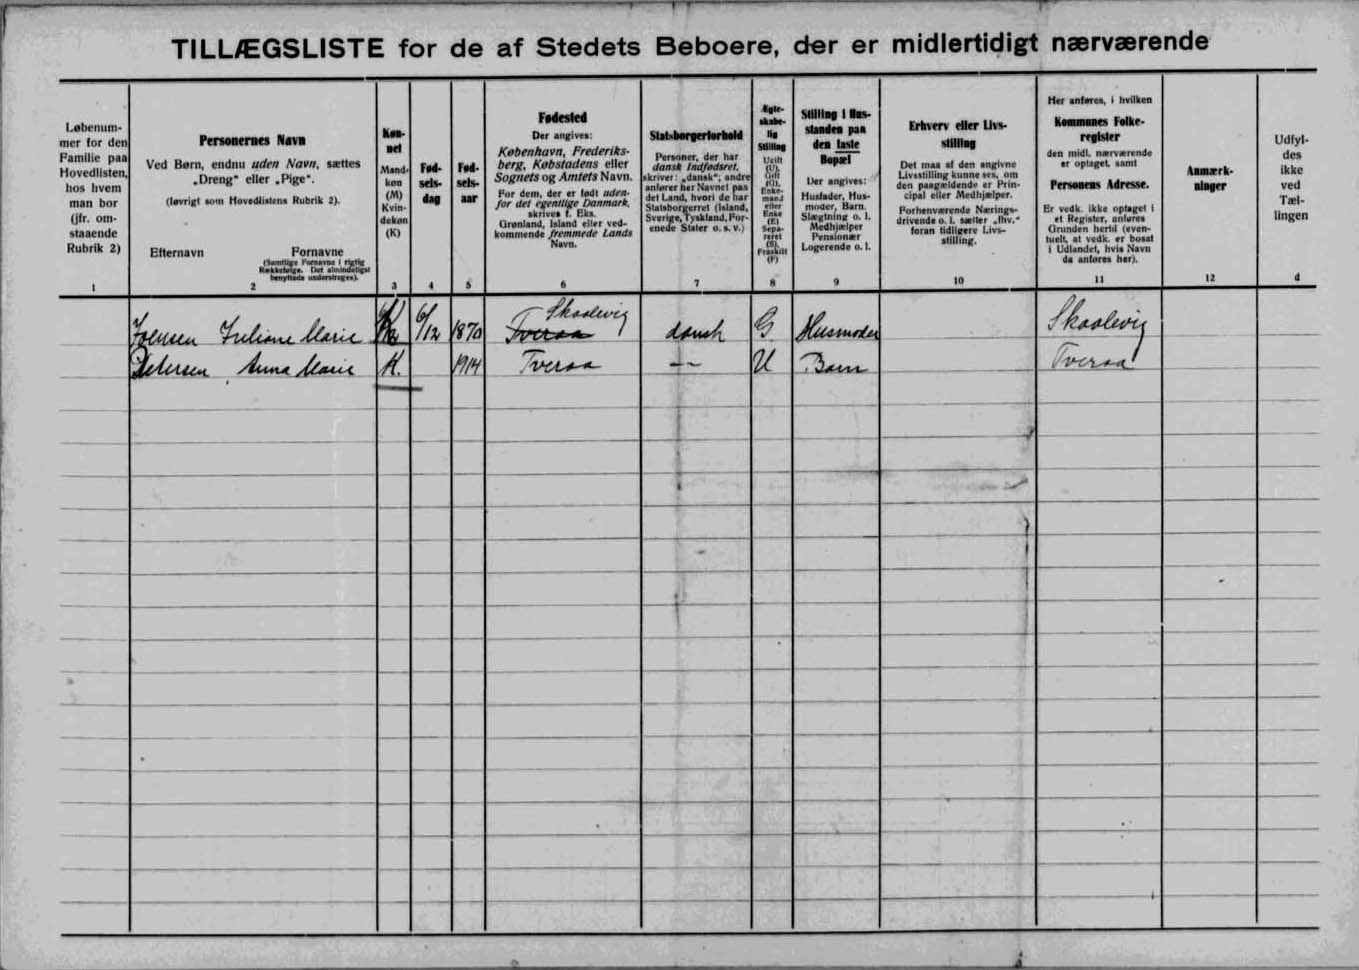 TILLÆGSLISTE for de af Stedets Beboere, der er midlertidigt nærværende
Løbenum-
mer for den
Familie paa
Hovedlisten,
hos hvem
man bor
(jfr. om-
staaende
Rubrik 2)
1
Personernes Navn
Ved Børn, endnu uden Navn, sættes
„Dreng“ eller „Pige“.
(Iøvrigt som Hovedlistens Rubrik 2).
Efternavn
Fornavne
(Samtlige Fornavne i rigtig
Rækkefølge. Det almindeligst
benyttede understreges).
2
Køn-
net
Mand-
køn
(M)
Kvin-
dekøn
(K)
3
Fød-
sels-
dag
4
Fød-
sels-
aar
5
Fødested
Der angives:
København, Frederiks-
berg, Købstadens eller
Sognets og Amtets Navn.
For dem, der er født uden-
for det egentlige Danmark,
skrives f. Eks.
Grønland, Island eller ved-
kommende fremmede Lands
Navn.
6
Statsborgerforhold
Personer, der har
dansk Indfødsret,
skriver: „dansk“; andre
anfører her Navnet paa
det Land, hvori de har
Statsborgerret (Island,
Sverige, Tyskland, For-
enede Stater o. s. v.)
7
Ægte-
skabe-
lig
Stilling
Ugift
(U).
Gift
(G),
Enke-
mand
eller
Enke
(E)
Sepa-
reret
(S).
Fraskilt
(F)
8
Stilling i Hus-
standen paa
den faste
Bopæl
Der angives:
Husfader, Hus-
moder, Barn.
Slægtning o. l.
Medhjælper
Pensionær
Logerende o. l.
9
Erhverv eller Livs-
stilling
Det maa af den angivne
Livsstilling kunne ses, om
den paagældende er Prin-
cipal eller Medhjælper.
Forhenværende Nærings-
drivende o. l. sætter „fhv.“
foran tidligere Livs-
stilling.
10
Her anføres, i hvilken
Kommunes Folke-
register
den midl. nærværende
er optaget, samt
Personens Adresse.
Er vedk. ikke optaget i
et Register, anføres
Grunden hertil (even-
tuelt, at vedk. er bosat
i Udlandet, hvis Navn
da anføres her).
11
Anmærk-
ninger
12
Udfyl-
des
ikke
ved
Tæl-
lingen
d
Skaalevig
Joensen Juliane Marie K 6/12 1870 Tveraa dansk G. Husmoder Skaalevig
Petersen Anna Marie K. 1914 Tveraa — U Barn Tveraa